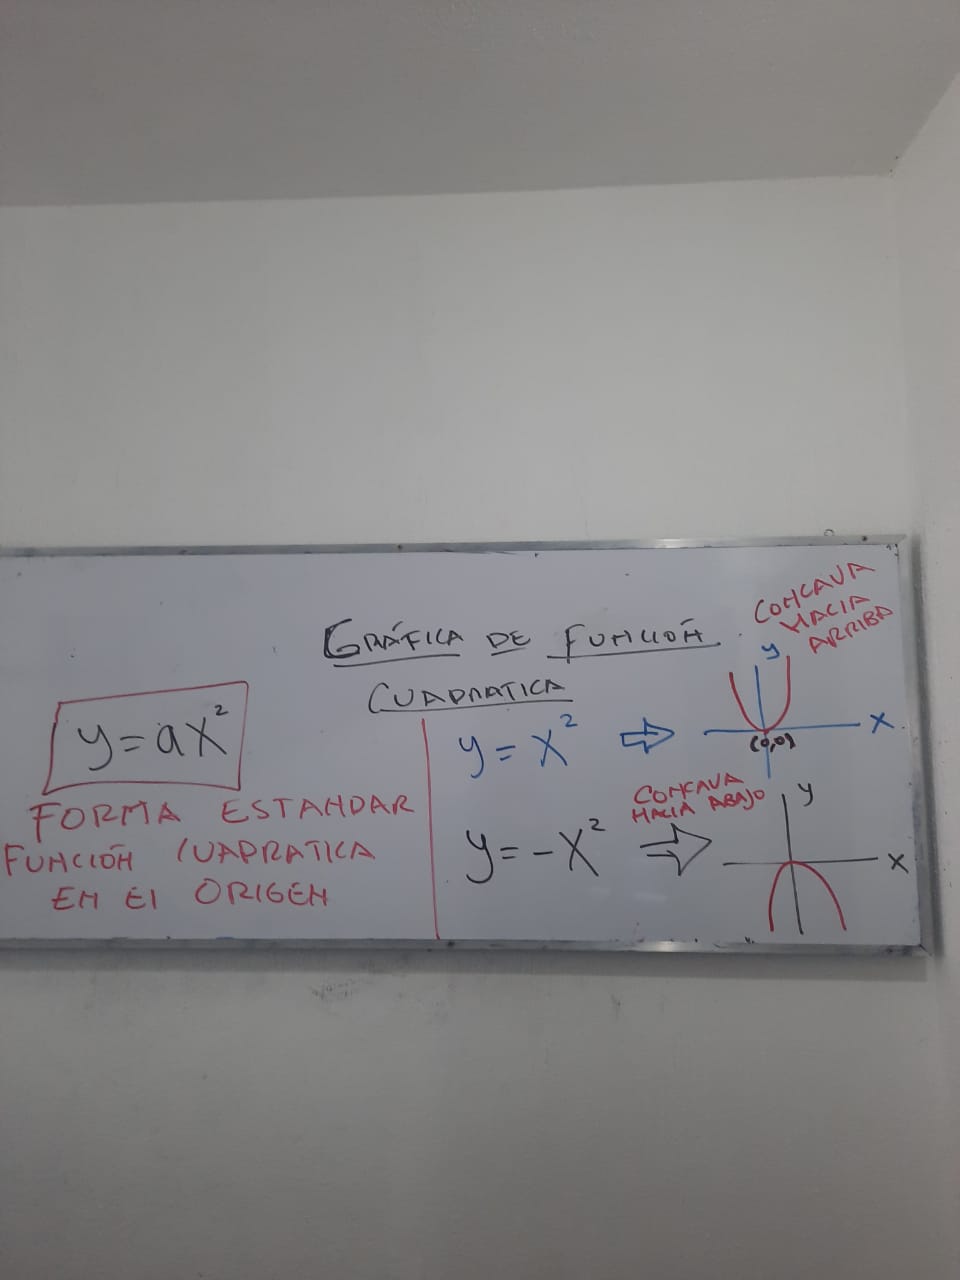 GRÁFICA DE FUNCIÓN
CUADRATICA
y=ax²
FORMA ESTANDAR
FUNCIÓN CUADRATICA
EN El ORIGEN
y=x²
CONCAVA
HACIA
ARRIBA
y
x
(0,0)
y=-x²
CONCAVA
HACIA ABAJO
y
x